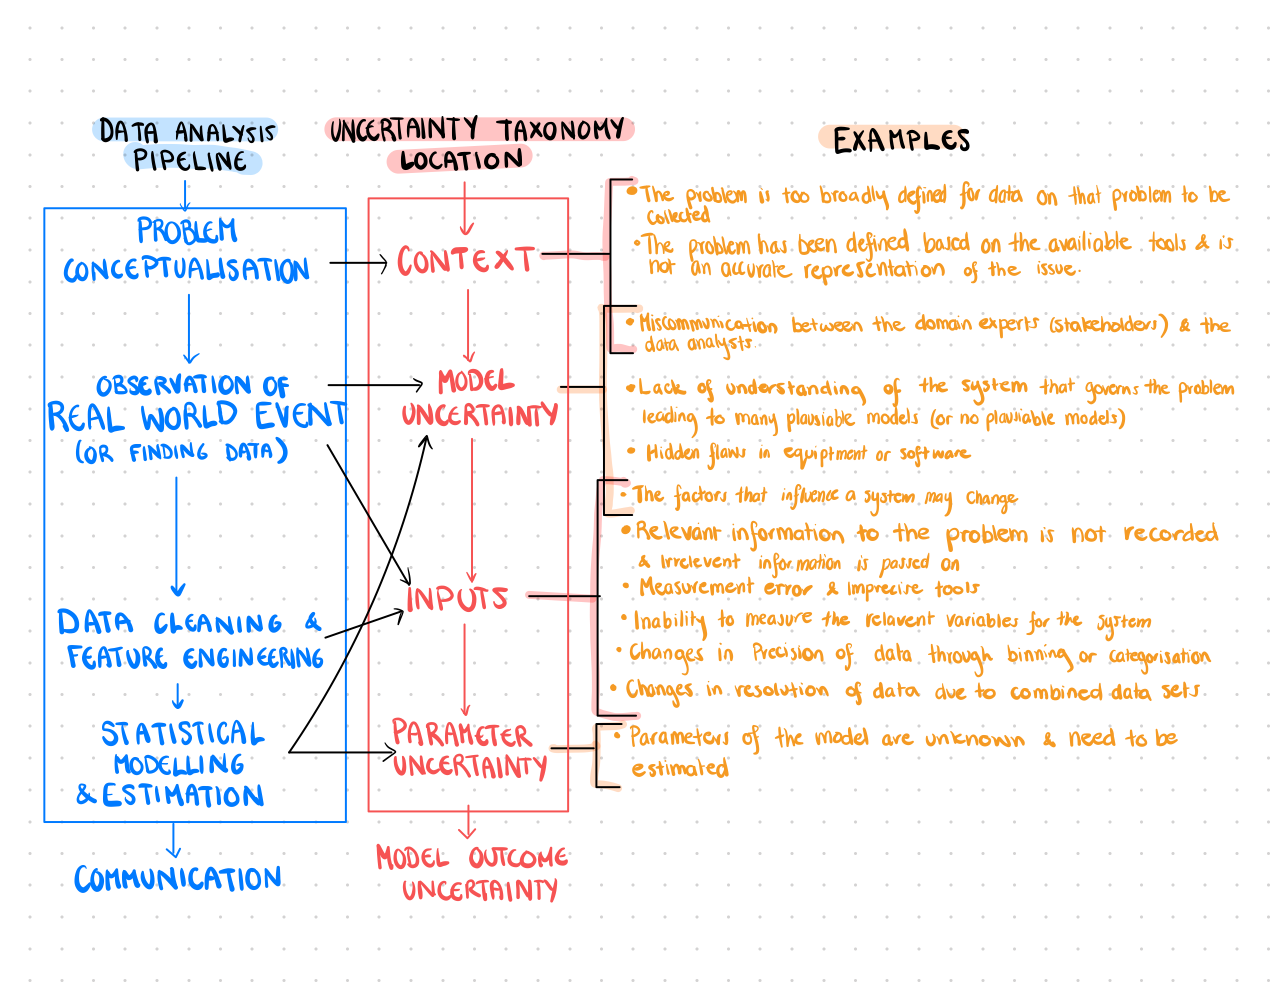 DATA ANALYSIS
PIPELINE
PROBLEM
CONCEPTUALISATION
OBSERVATION OF
REAL WORLD EVENT
(OR FINDING DATA)
DATA CLEANING &
FEATURE ENGINEERING
STATISTICAL
MODELLING
& ESTIMATION
COMMUNICATION
UNCERTAINTY TAXONOMY
LOCATION
CONTEXT
MODEL
UNCERTAINTY
INPUTS
PARAMETER
UNCERTAINTY
MODEL OUTCOME
UNCERTAINTY
EXAMPLES
• The problem is too broadly defined for data on that problem to be
collected
• The problem has been defined based on the availiable tools & is
not an accurate representation of the issue.
• Miscommunication between the domain experts (stakeholders) & the
data analysts
• Lack of understanding of the system that governs the problem
leading to many plausiable models (or no plausiable models)
• Hidden flaws in equiptment or software
• The factors that influence a system may change
• Relevant information to the problem is not recorded
& Irrelevent information is passed on
• Measurement error & Imprecise tools
• Inability to measure the relavent variables for the system
• Changes in Precision of data through binning or categorisation
• Changes in resolution of data due to combined data sets
• Parameters of the model are unknown & need to be
estimated